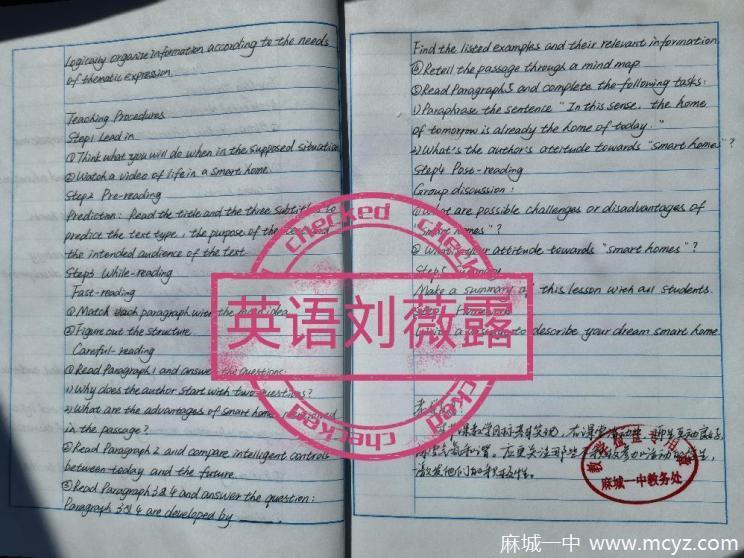 Logically organize information according to the needs
of thematic expression.
Teaching Procedures
Step1 Lead in
①Think what you will do when in the supposed situation
②Watch a video of life in a smart home.
Step2 Pre-reading
Prediction: Read the title and the three subtitles to
predict the text type, the purpose of the text and
the intended audience of the text.
Step3 While-reading
Fast-reading
①Match each paragraph with the main idea
②Figure out the structure
Careful-reading
①Read Paragraph 1 and answer the questions:
1) Why does the author start with two questions?
2) What are the advantages of smart homes
in the passage?
②Read Paragraph 2 and compare intelligent controls
between today and the future.
③Read Paragraph 3&4 and answer the question:
Paragraph 3&4 are developed by ______.
Find the listed examples and their relevant information
④Retell the passage through a mind map
⑤Read Paragraph 5 and complete the following tasks:
1) Paraphrase the sentence "In this sense, the home
of tomorrow is already the home of today."
2) What's the author's attitude towards "smart homes"?
Step4 Post-reading
Group discussion:
① What are possible challenges or disadvantages of
"smart homes"?
② What's your attitude towards "smart homes"?
Step5 Summary
Make a summary of this lesson with all students.
Step6 Homework
a passage to describe your dream smart home.
checked
英语刘薇露
checked
麻城一中教务处
麻城一中 www.mcyz.com